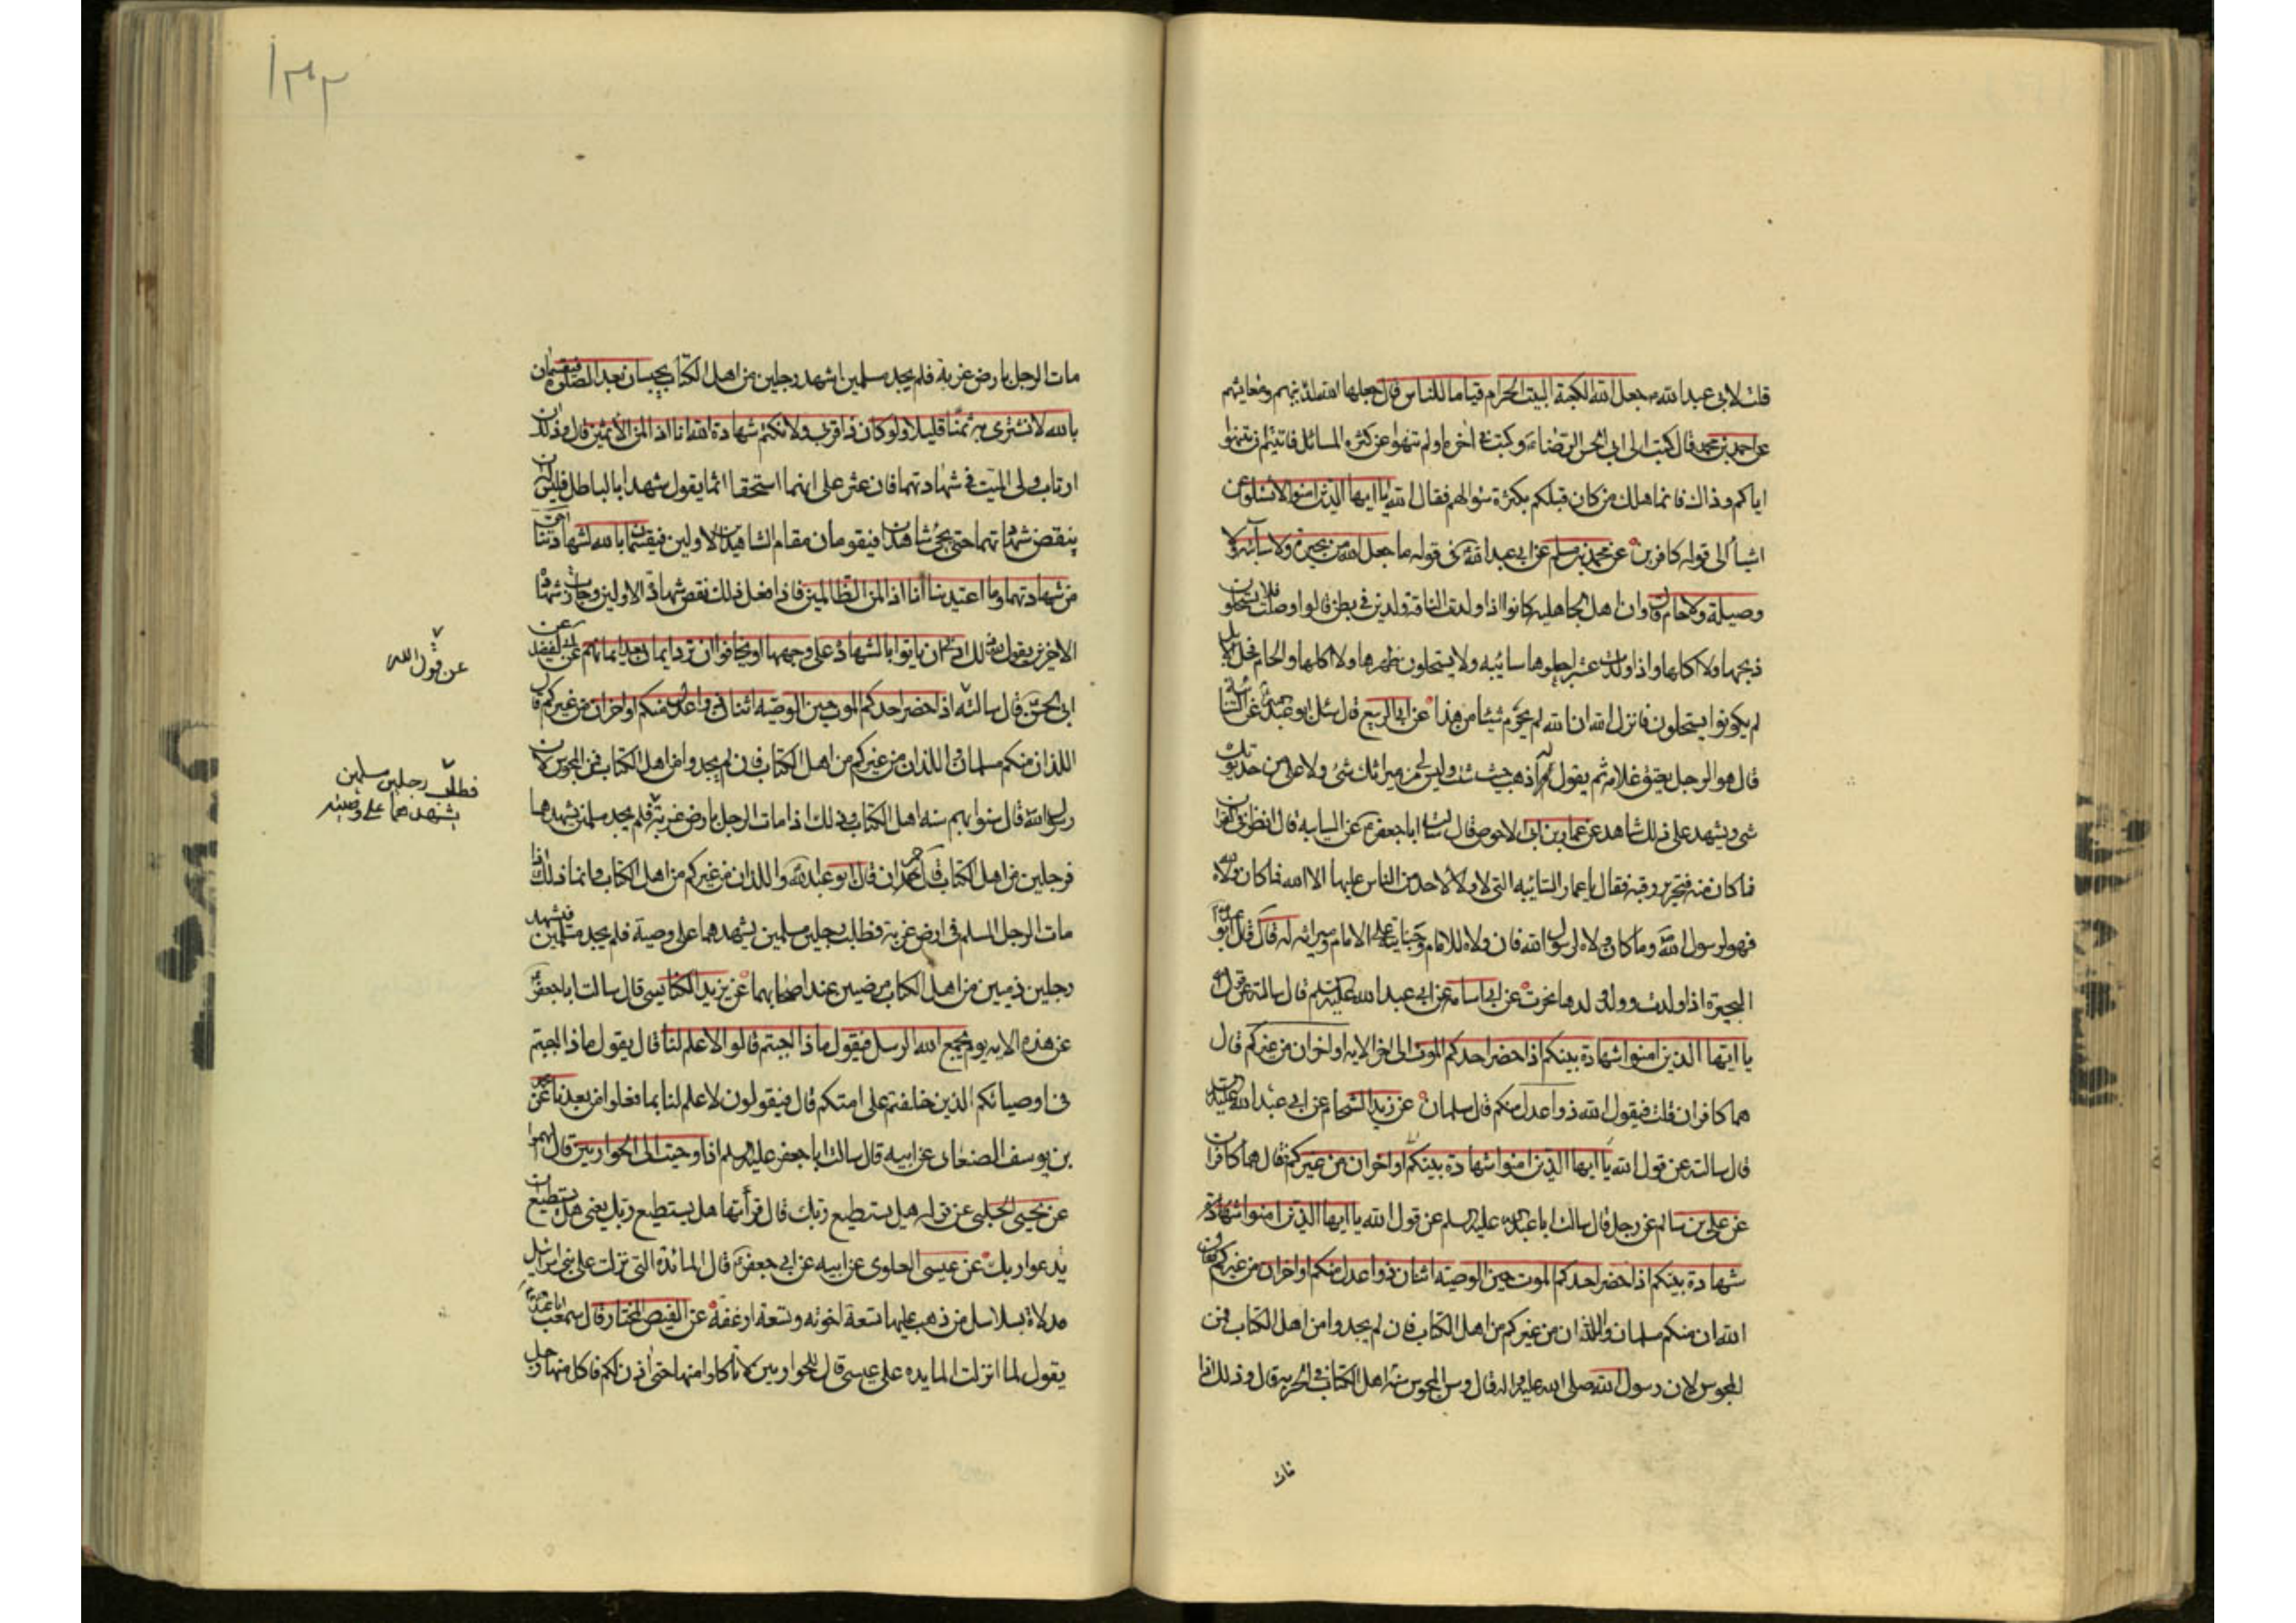 قلت لابي عبد الله ع جعل الله الكعبة البيت الحرام قياما للناس قال جعلها الله لدينهم ومعايشهم
عن احمد بن محمد قال كتبت الى ابي الحسن الرضاء وكتب في اخره اولم تنهوا عن كثرة المسائل فابيتم ان تنتهوا
اياكم وذاك فانما هلك من كان قبلكم بكثرة سوالهم فقال الله يا ايها الذين امنوا لا تسئلوا عن
اشيأ الى قوله كافرين عن محمد بن مسلم عن ابي عبد الله في قوله ما جعل الله من بحيرة ولا سائبة ولا
وصيلة ولا حام قال وان اهل الجاهلية كانوا اذا ولدت الناقة ولدين في بطن قالوا وصلت فلا يستحلون
ذبحها ولا اكلها واذا ولدت عشرا جعلوها سائبه ولا يستحلون ظهرها ولا اكلها والحام فحل الابل
لم يكونوا يستحلون فانزل الله ان الله لم يحرم شيئا من هذا عن ابي الربيع قال سئل ابو عبد الله عن السائبة
قال هو الرجل يعتق غلامه ثم يقول له اذهب حيث شئت وليس لي من ميراثك شئ ولا علي من جريرتك
شئ ويشهد على ذلك شاهد عن عمار بن ابي الاحوص قال سالت ابا جعفر ع عن السايبه قال انظر في القران
فما كان فيه فتحرير رقبه فقال يا عمار السائبه التي لا ولاء لاحد من الناس عليها الا الله فما كان ولاه لله
فهو لرسول الله وما كان ولاه لرسول الله فان ولاه للامام وجنايته على الامام وميراثه له قال قال ابو عبد الله
البحيرة اذا ولدت وولد لدها بحرت عن ابي اسامه عن ابي عبد الله عليه السلم قال سالته عن قول الله
يا ايها الذين امنوا شهادة بينكم اذا حضر احدكم الموت الى اخر الايه او اخران من غيركم قال
هما كافران قلت فيقول الله ذوا عدل منكم قال مسلمان عن زيد الشحام عن ابي عبد الله عليه السلم
قال سالته عن قول الله يا ايها الذين امنوا شهادة بينكم او اخران من غيركم قال هما كافران
عن علي بن سالم عن رجل قال سالت ابا عبد الله عليه السلم عن قول الله يا ايها الذين امنوا شهادة
شهادة بينكم اذا حضر احدكم الموت حين الوصية اثنان ذوا عدل منكم او اخران من غيركم فقال
اللذان منكم مسلمان واللذان من غيركم من اهل الكتاب فان لم يجدوا من اهل الكتاب فمن
المجوس لان رسول الله صلى الله عليه واله قال وسن المجوس سنة اهل الكتاب في الجزية قال وذلك اذا
مات
١٣٣
مات الرجل بارض غربة فلم يجد مسلمين اشهد رجلين من اهل الكتاب يحبسان بعد الصلوة فيقسمان
بالله لا نشترى به ثمنا قليلا ولو كان ذا قربى ولا نكتم شهادة الله انا اذا لمن الاثمين قال وذلك ان
ارتاب ولي الميت في شهادتهما فان عثر على انهما استحقا اثما يقول شهدا بالباطل فليس له ان
ينقض شهادتهما حتى يجئ شاهدان فيقومان مقام الشاهدين الاولين فيقسمان بالله لشهادتنا احق
من شهادتهما وما اعتدينا انا اذا لمن الظالمين فاذا فعل ذلك نقض شهادة الاولين وجازت شهادة
الاخرين يقول الله ذلك ادنى ان ياتوا بالشهادة على وجهها او يخافوا ان ترد ايمان بعد ايمانهم عن ابن الفضيل عن
ابي الحسن ع قال سالته اذا حضر احدكم الموت حين الوصيه اثنان ذوا عدل منكم او اخران من غيركم قال
عن قول الله
اللذان منكم مسلمان واللذان من غيركم من اهل الكتاب فان لم يجدوا من اهل الكتاب فمن المجوس لان
رسول الله قال سنوا بهم سنه اهل الكتاب وذلك اذا مات الرجل بارض غربة فلم يجد مسلمين يشهدهما
فطلب رجلين مسلمين
يشهدهما على وصيته
فرجلين من اهل الكتاب قال حمران قال ابو عبد الله واللذان من غيركم من اهل الكتاب وانما ذلك اذا
مات الرجل المسلم في ارض غربة فطلب رجلين مسلمين يشهدهما على وصية فلم يجد مسلمين فيشهد
رجلين ذميين من اهل الكتاب مرضيين عند اصحابهما عن يزيد الكناسي قال سالت ابا جعفر ع
عن هذه الايه يوم يجمع الله الرسل فيقول ماذا اجبتم قالوا لا علم لنا قال يقول ماذا اجبتم
في اوصيائكم الذين خلفتم على امتكم قال فيقولون لا علم لنا بما فعلوا من بعدنا عن محمد
بن يوسف الصنعانى عن ابيه قال سالت ابا جعفر عليه السلم اذ اوحيت الى الحواريين قال الهموا
عن يحيى الحلبي عن قوله هل يستطيع ربك قال قرأتها هل يستطيع ربك يعنى هل يستطيع ان
يدعوا ربك عن عيسى العلوى عن ابيه عن ابي جعفر ع قال المائدة التى نزلت على بني اسرائيل
مدلاة بسلاسل من ذهب عليها تسعة اخونه وتسعة ارغفة عن الفيض المختار قال سمعت ابا عبد الله
يقول لما انزلت المايده على عيسى قال للحواريين لا تاكلوا منها حتى اذن لكم فاكل منها رجل